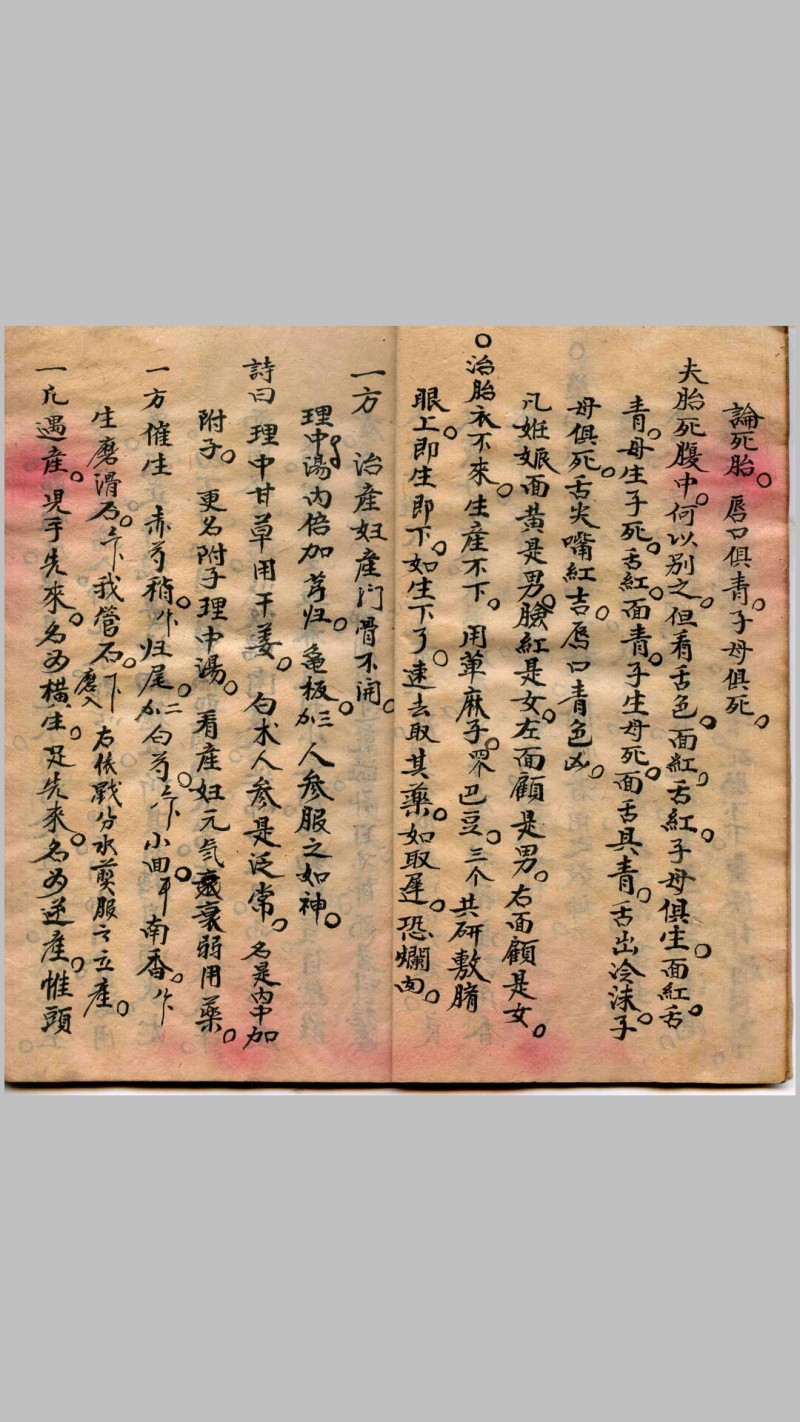 論死胎。唇口俱青。子母俱死。
夫胎死腹中。何以別之。但看舌色。面紅。舌紅。子母俱生。面紅舌。
青。母生子死。舌紅。面青。子生母死。面舌具青。舌出冷沫子。
母俱死。舌尖嘴紅吉。唇口青色凶。
凡姙娠面黃是男。臉紅是女。左面顧是男。右面顧是女。
○治胎衣不來。生産不下。用萆麻子。巴豆。三个共研敷臍
眼上即生即下。如生下了。速去取其藥。如取遲。恐爛肉。
一方 治産妇産门骨不開。
理中湯内倍加芎归。龜板。加三人参服之如神。
詩曰 理中甘草用干姜。白术人参是泛常。名是内中加
附子。更名附子理中湯。看産妇元氣衰弱用藥。
一方催生 赤芍稍。归尾。加二白芍。小茴 南香。
生磨滑石。我管石。磨入 右依戥分水煎服之立産。
一凡遇産。児手先來。名为橫生。足先來。名为逆産。惟頭